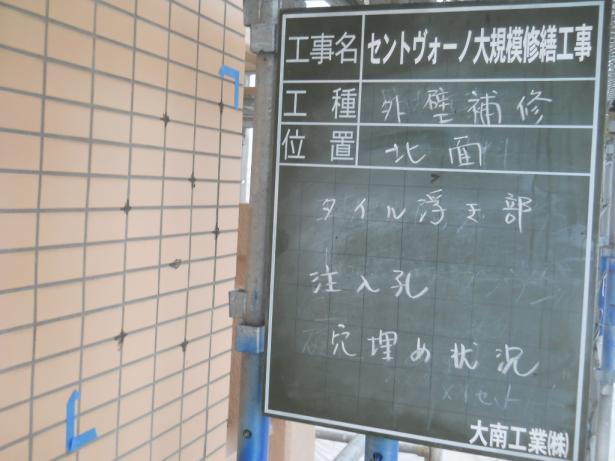 工事名 セントヴォーノ大規模修繕工事
工種 外壁補修
位置 北面
タイル浮き部
注入孔
穴埋め状況
大南工業㈱